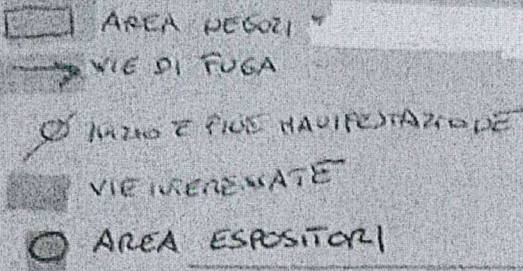 AREA NEGOZI
VIE DI FUGA
INIZIO E FINE MANIFESTAZIONE
VIE INTERESSATE
AREA ESPOSITORI